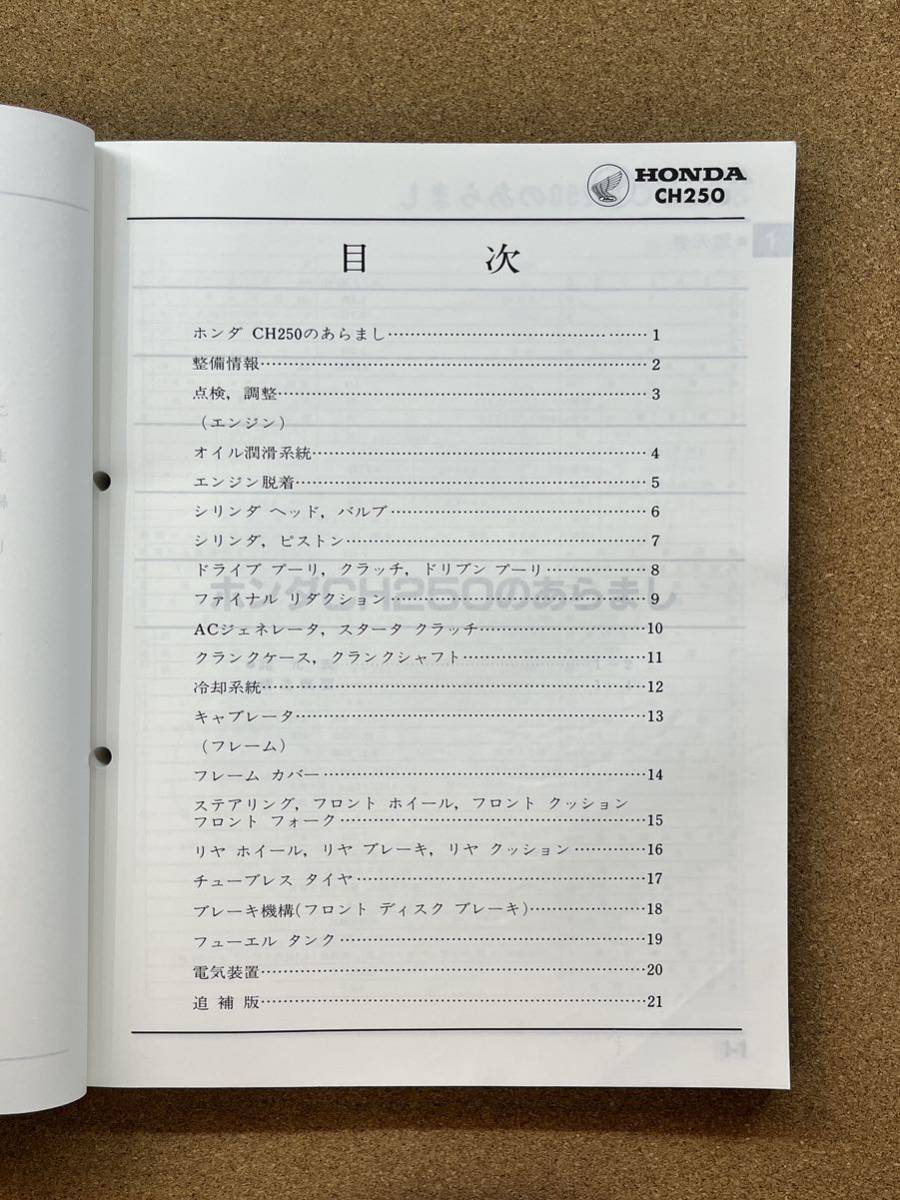 HONDA
CH250
目次
ホンダ CH250のあらまし……………………………………1
整備情報……………………………………2
点検，調整……………………………………3
（エンジン）
オイル潤滑系統……………………………………4
エンジン脱着……………………………………5
シリンダ ヘッド，バルブ……………………………………6
シリンダ，ピストン……………………………………7
ドライブ プーリ，クラッチ，ドリブン プーリ…………8
ファイナル リダクション……………………………………9
ACジェネレータ，スタータ クラッチ…………………10
クランクケース，クランクシャフト……………………11
冷却系統……………………………………12
キャブレータ……………………………………13
（フレーム）
フレーム カバー……………………………………14
ステアリング，フロント ホイール，フロント クッション
フロント フォーク……………………………………15
リヤ ホイール，リヤ ブレーキ，リヤ クッション…………16
チューブレス タイヤ……………………………………17
ブレーキ機構(フロント ディスク ブレーキ)……………18
フューエル タンク……………………………………19
電気装置……………………………………20
追補版……………………………………21